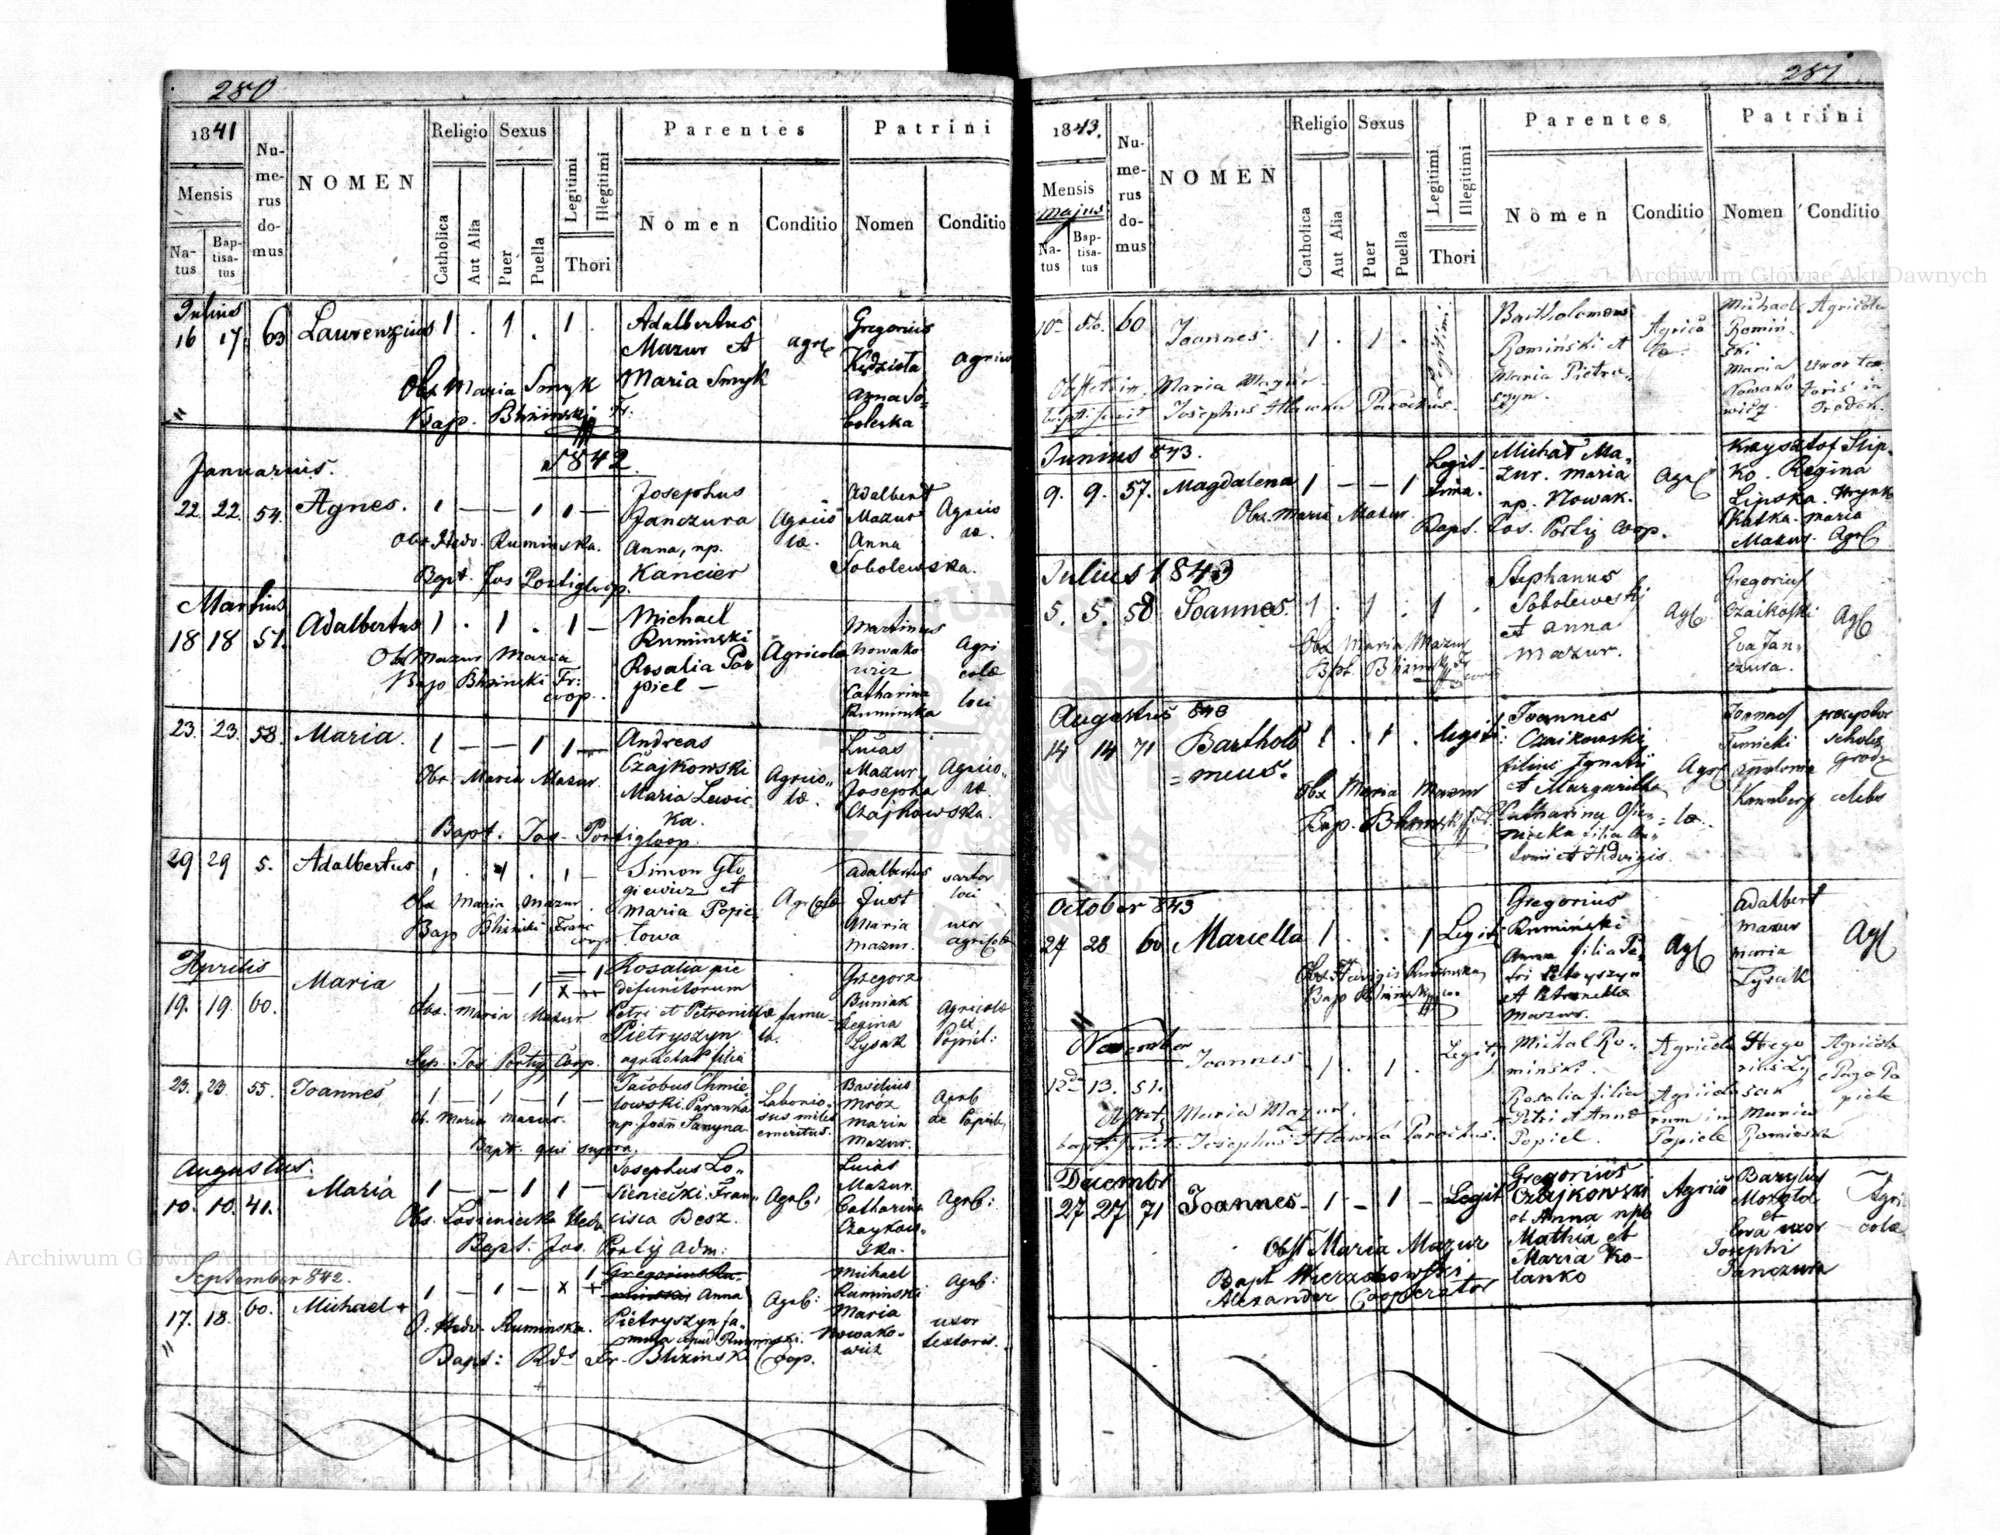 280
1841
Mensis
Natus
Baptisatus
Numerus domus
NOMEN
Religio
Catholica
Aut Alia
Sexus
Puer
Puella
Legitimi
Illegitimi
Thori
Parentes
Nomen
Conditio
Patrini
Nomen
Conditio
Julius
16 17 63 Laurenzius 1 . 1 . 1 .
Adalbertus
Mazur et
Maria Smyk
Gregorius
Anna So-
boleska
Obs. Maria Smyk
Bap. Bliziński Fr:
Januarius. 1842.
22. 22. 54. Agnes. 1 — — 1 1 —
Josephus
Janczura
Anna, np.
Kancier
Agrico
læ.
Adalbert
Mazur
Anna
Sobolewska.
Agrico
læ.
Obs. Hedv. Ruminska.
Bapt. Jos Portig coop.
Martius
18 18 51. Adalbertus 1 . 1 . 1 —
Michael
Ruminski
Rosalia Po
piel —
Agricolæ
Martinus
Nowako
wicz
Catharina
Ruminska
Agri
colæ
loci
Obs Mazur Maria
Bap Bliziński Fr:
coop.
23. 23. 58. Maria. 1 — — 1 1 —
Andreas
Czajkowski
Maria Lewic
ka.
Agrico-
læ.
Lucas
Mazur
Josepha
Czajkowska.
Agrico-
læ.
Obs. Maria Mazur.
Bapt. Jos. Portig coop.
29 29 5. Adalbertus 1 . 1 . 1 —
Simon Glo
giewicz et
Maria Popie
lowa
Adalbertus
Just
Maria
Mazur.
sartor
loci
uxor
agricolæ
Obs Maria Mazur.
Bap Bliziński Franc
coop
Aprilis
19. 19. 60. Maria 1 — — 1 x — 1
Rosalia pie
defunctorum
Petri et Petronillæ
Pietryszyn
agricolar. filia
famu-
la.
Grzegorz
Buniak
Regina
Łysak
Agricolæ
ex
Popiel:
Obs. Maria Mazur
Jos Portig Coop.
23. 23 55. Joannes 1 — 1 — 1 —
Jacobus Chmie
lowski. Paranka
np. Joan Sanyna
Laborio-
sus miles
emeritus.
Basilius
Mróz
Maria
Mazur.
Agrb
de Popiele
Ob. Maria Mazur.
Bapt. qui supra.
Augustus.
10. 10. 41. Maria 1 — — 1 1 —
Josephus Ło-
sieniecki. Fran-
cisca Desz.
Lucas
Mazur.
Catharina
Czaykow-
ska.
Obs. Łosieniecka Hedv
Bapt. Jos. Portij Adm:
September 842.
17. 18. 60. Michael + 1 — 1 — x + 1
Gregorius Ru-
minski Anna
Pietryszyn fa-
mula apud Ruminski.
Michael
Ruminski
Maria
Nowako-
wicz
uxor
textoris.
O. Hedv. Ruminska.
Bapt: Rds Fr. Bliziński Coop.
281
1843.
Mensis
Majus
Natus
Baptisatus
Numerus domus
NOMEN
Religio
Catholica
Aut Alia
Sexus
Puer
Puella
Legitimi
Illegitimi
Thori
Parentes
Nomen
Conditio
Patrini
Nomen
Conditio
60 Joannes. 1 . 1 . Legitimi
Bartholomeus
Romiński et
Maria Pietry-
szyn.
Agrico
læ.
Michael
Romiń-
ski
Maria
Nowako
wicz.
Agricola
Obstetrix Maria Mazur.
bapt. fecit Josephus Hławka Parochus.
Junius 843.
9. 9. 57. Magdalena 1 — — 1 Legit-
tima.
Michał Ma-
zur. Maria
np. Nowak.
Krzysztof Slip-
ko. Regina
Lipska. Hrynk
Katka. Maria
Mazur.
Obs. Maria Mazur.
Bapt. Jos. Portij coop.
Julius 1843
5. 5. 58 Joannes. 1 . 1 . 1 .
Stephanus
Sobolewski
et Anna
Mazur.
Gregorius
Czaikoski
Eva Jan-
czura.
Obs Maria Mazur
Bpt. Bliziński Fr
Augustus 843
14 14 71 Bartholo
= meus. 1 . 1 . Legiti:
Joannes
Czaikowski
filius Ignatii
et Margarithæ
Catharina Osie-
niecka filia An-
tonii et Hedvigis.
Joannes
Jumicki
Apolonia
præceptor
scholæ
Obs Maria Mazur
Bap. Bliziński
October 843
27 28 60 Mariella 1 . . 1 Legiti
Gregorius
Rumiński
Anna filia Pe-
tri Pietryszyn
et Petronella
Mazur.
Adalbert
Mazur
Maria
Łysak
Obs. Hedvigis Ruminska
Bap Bliziński
November
12 13. 51. Joannes 1 . 1 . Legiti
Michal Ro-
miński.
Rosalia filia
Petri et Anna
Popiel.
Agricola
Agricola
rum in
Popiele
Hrego
rius Ły
sak
Maria
Rominska
Agricolæ
e Pago Po
piele
Obstetr. Maria Mazur.
bapt. fecit. Josephus Hławka Parochus.
Decembr
27 27 71 Joannes 1 — 1 — Legit
Gregorius
Czajkowski
et Anna npta
Mathia et
Maria Ko-
tanko
Agrico
Bazylius
et
Eva uxor
Josephi
Janczura
Agri
colæ
Obst Maria Mazur
Bapt Wierzchowski
Alexander Cooperator
Archiwum Główne Akt Dawnych
Archiwum Główne Akt Dawnych